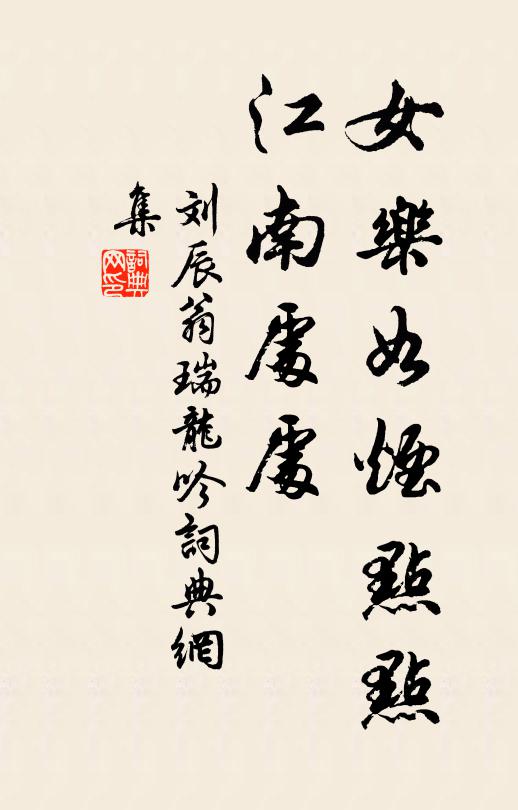 女樂如煙點點
江南處處
刘辰翁瑞龍吟詞典網
集
詞典
网印